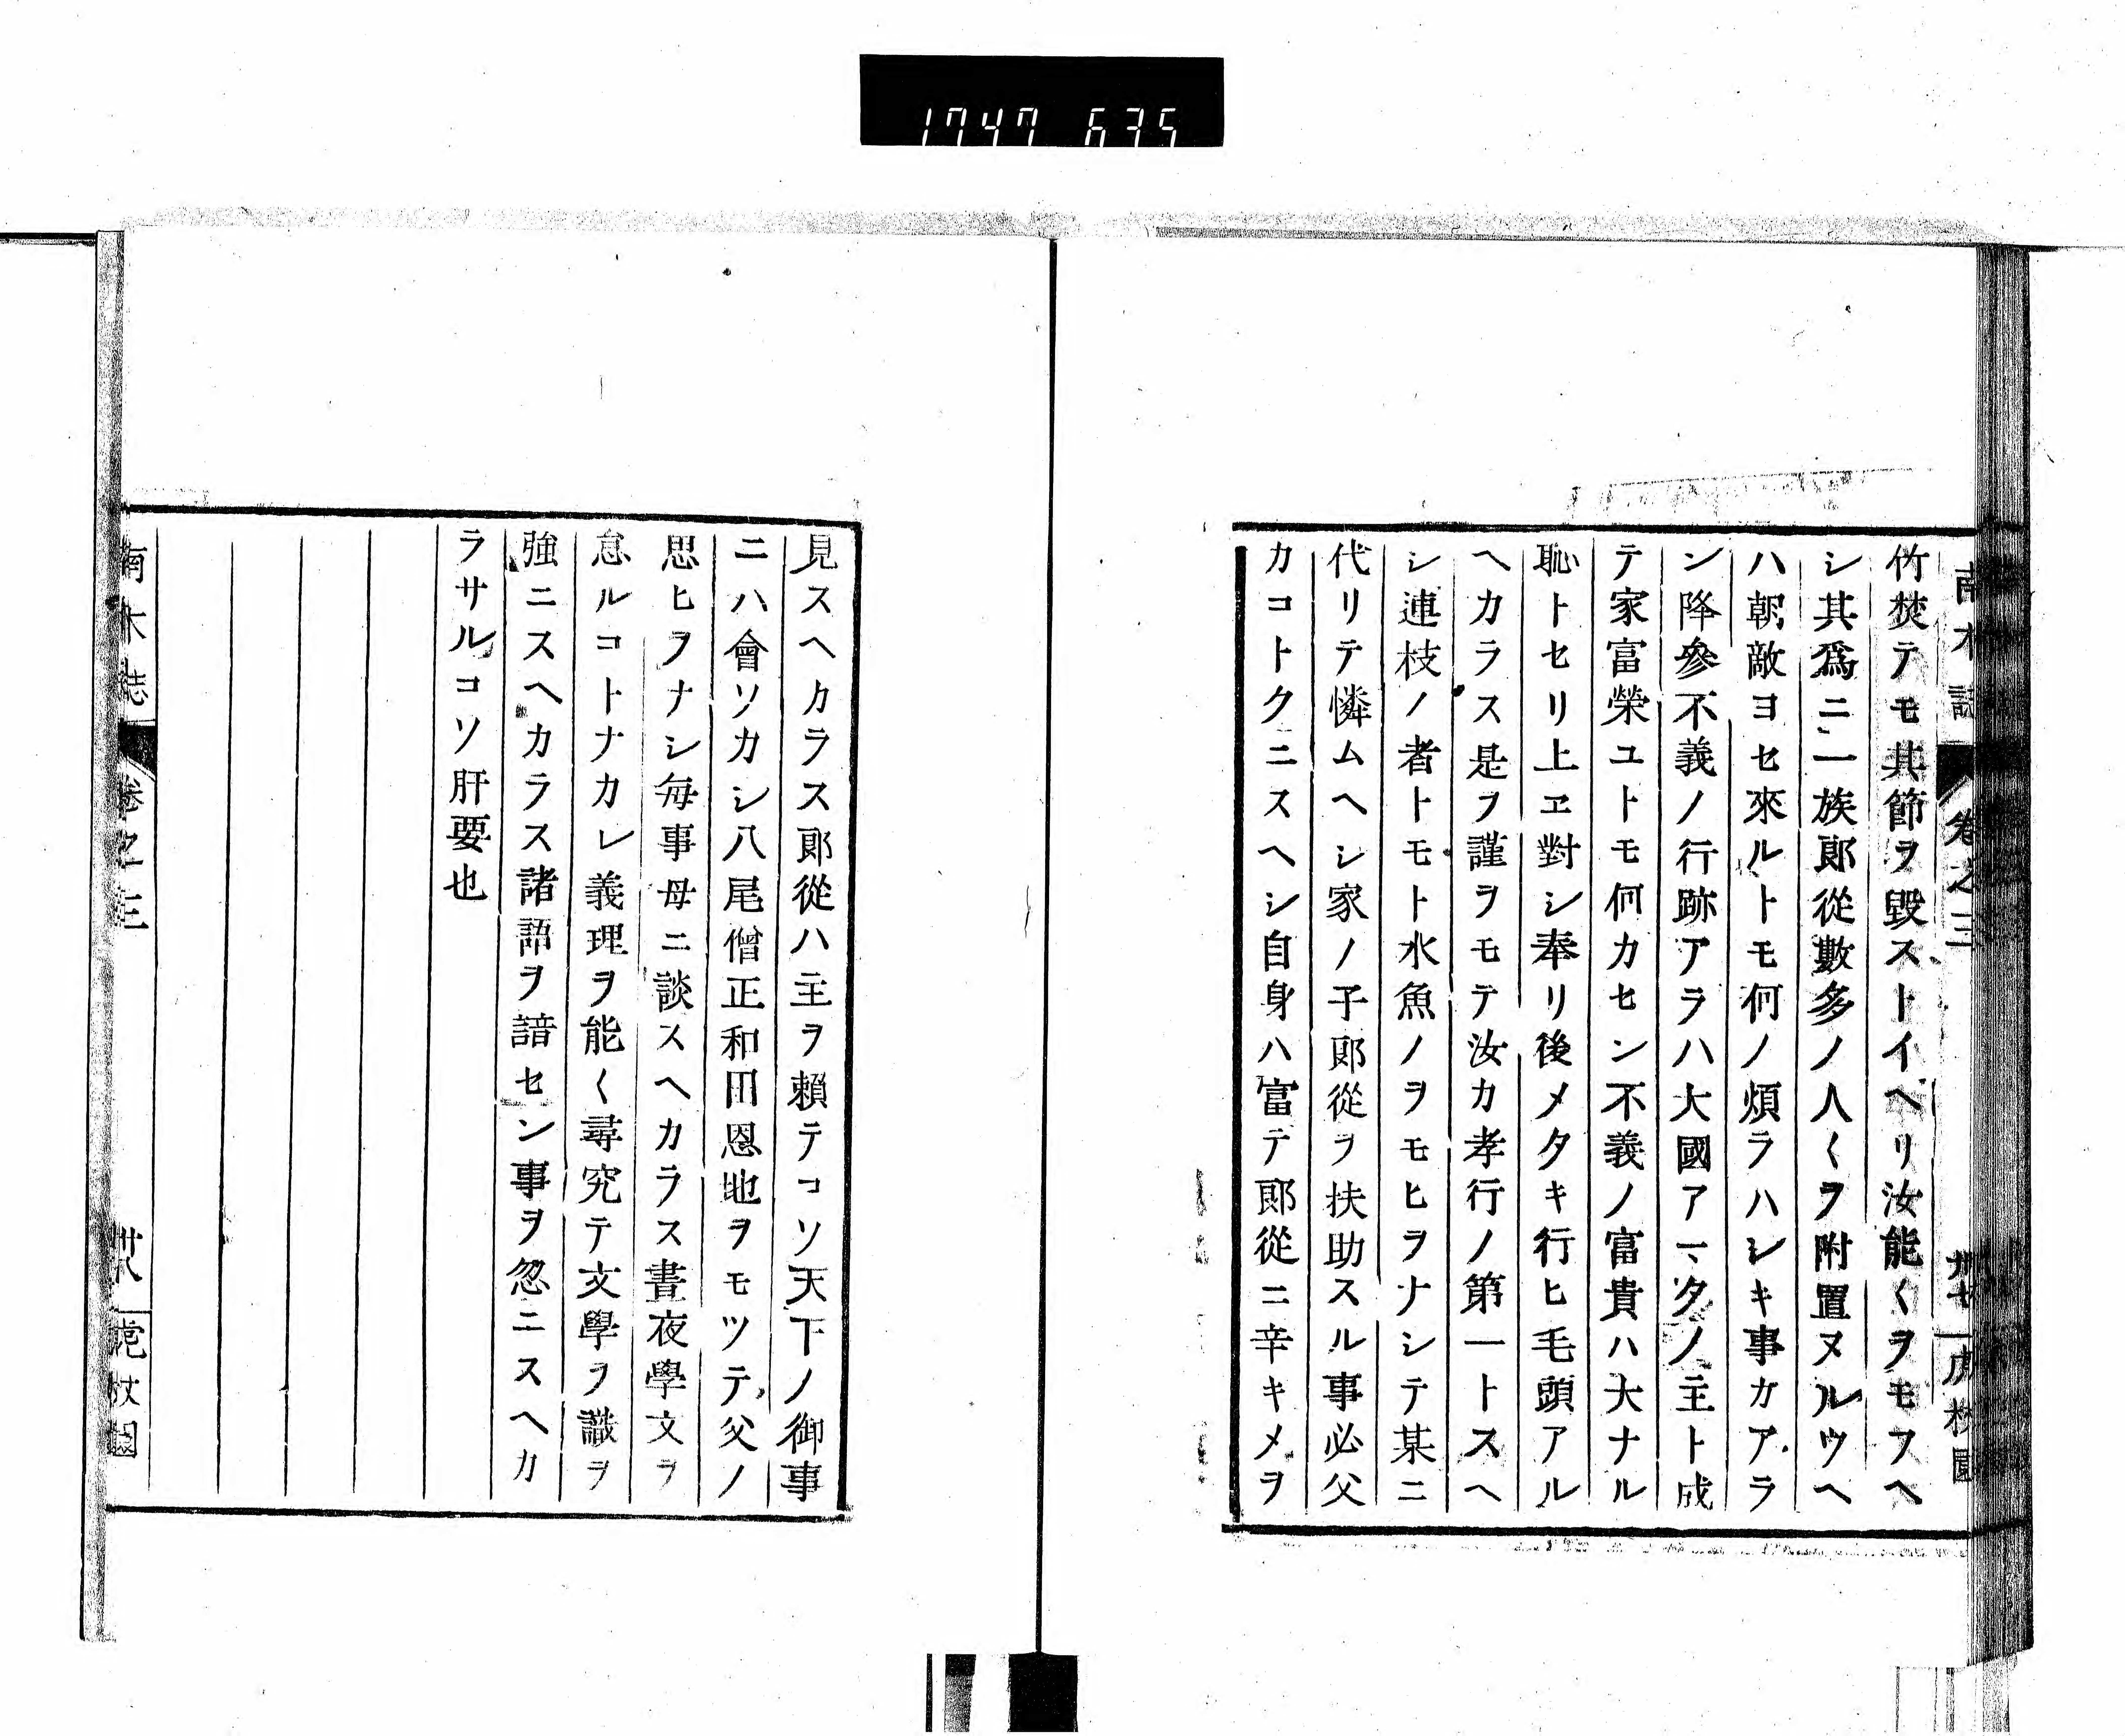 1747 635
南木誌 卷之三 卅七 虎杖園
竹焚テモ其節ヲ毀ストイヘリ汝能くヲモフヘ
シ其爲ニ一族郎從數多ノ人くヲ附置ヌルウヘ
ハ朝敵ヨセ來ルトモ何ノ煩ラハシキ事カアラ
ン降參不義ノ行跡アラハ大國アマタノ主ト成
テ家富榮ユトモ何カセン不義ノ富貴ハ大ナル
恥トセリ上ヱ對シ奉リ後メタキ行ヒ毛頭アル
ヘカラス是ヲ謹ヲモテ汝カ孝行ノ第一トスヘ
シ連枝ノ者トモト水魚ノヲモヒヲナシテ某ニ
代リテ憐ムヘシ家ノ子郎從ヲ扶助スル事必父
カコトクニスヘシ自身ハ富テ郎從ニ辛キメヲ
見スヘカラス郎從ハ主ヲ賴テコソ天下ノ御事
ニハ會ソカシ八尾僧正和田恩地ヲモツテ父ノ
思ヒヲナシ毎事母ニ談スヘカラス晝夜學文ヲ
怠ルコトナカレ義理ヲ能く尋究テ文學ヲ識ヲ
強ニスヘカラス諸語ヲ諳セン事ヲ忽ニスヘカ
ラサルコソ肝要也
南木誌 卷之三 卅八 虎杖園